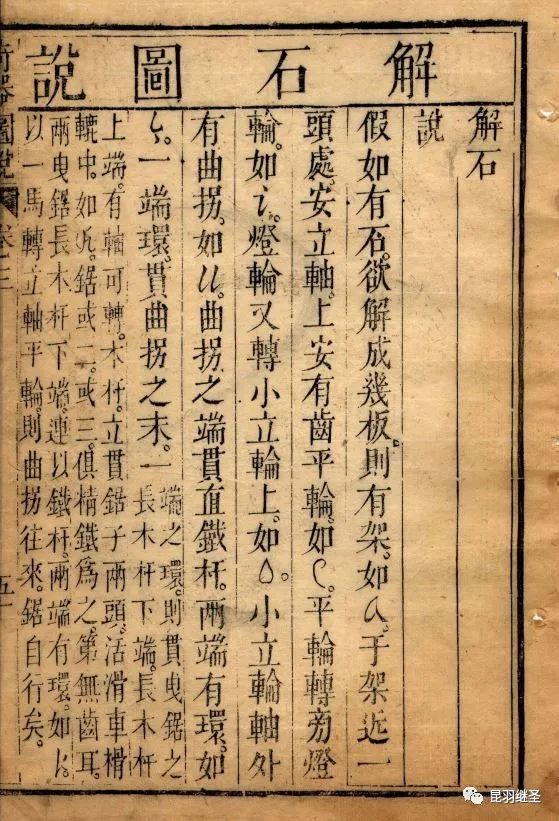 解石圖說
解石
說
假如有石。欲解成幾板。則有架。如。于架近一
頭處。安立軸。上安有齒平輪。如。平輪轉旁燈
輪。如。燈輪又轉小立輪上。如。小立輪軸外
有曲拐。如。曲拐之端貫直鐵杆。兩端有環。如
。一端環。貫曲拐之末。一
端之環。則貫曳鋸之
長木杆下端。長木杆
上端。有軸可轉。木杆。立貫鋸子兩頭。活滑車槽
轆中。如。鋸或二。或三。俱精鐵爲之。第無齒耳。
兩曳鋸長木杆下端。連以鐵杆。兩端有環。如。
以一馬轉立軸平輪。則曲拐往來。鋸自行矣。
奇器圖說 卷三
昆羽继圣